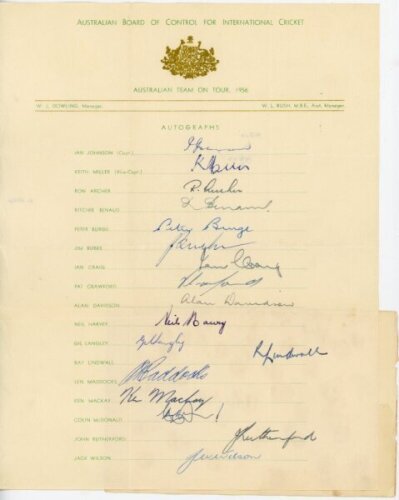 AUSTRALIAN BOARD OF CONTROL FOR INTERNATIONAL CRICKET
AUSTRALIAN TEAM ON TOUR, 1956
W. J. DOWLING, Manager. W. L. RUSH, M.B.E., Asst. Manager.
AUTOGRAPHS
IAN JOHNSON (Capt.)
KEITH MILLER (Vice-Capt.) K Miller
RON ARCHER R. Archer
RITCHIE BENAUD R Benaud
PETER BURGE Peter Burge
JIM BURKE
IAN CRAIG Ian Craig
PAT CRAWFORD
ALAN DAVIDSON Alan Davidson
NEIL HARVEY Neil Harvey
GIL LANGLEY Gil Langley
RAY LINDWALL R Lindwall
LEN MADDOCKS Maddocks
KEN MACKAY Ken Mackay
COLIN McDONALD
JOHN RUTHERFORD J Rutherford
JACK WILSON J W Wilson